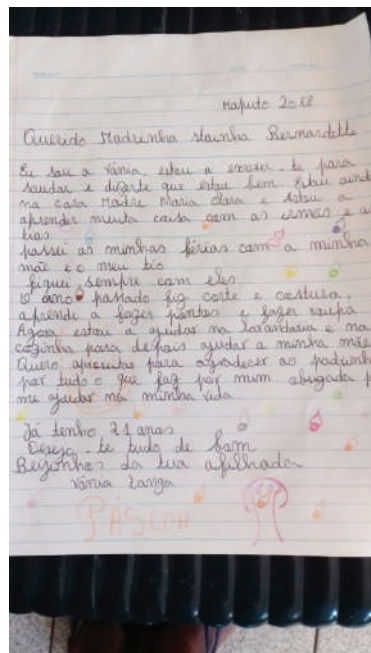 Maputo 2018
Querido Madrinha Bernardette
Eu sou a Vânia estou a escrever-te para
saudar e dizerte que estou bem Estou aind
na casa Madre Maria Clara e estou a
aprender muita coisa com as irmãs e a
tias
passei as minhas férias com a minha
mãe e o meu tio
fiquei sempre com eles
O ano passado fiz corte e costura,
aprende a fazer pontos e fazer roupa
Agora estou a ajudar na lavandaria e na
cozinha para depois ajudar a minha mãe
Quero aproveitar para agradecer ao padrinh
por tudo o que faz por mim obrigada p
me ajudar na minha vida
Já tenho 21 anos
Desejo-te tudo de bom
Beijinhos da tua afilhada
Vânia Langa
PÁSCOA